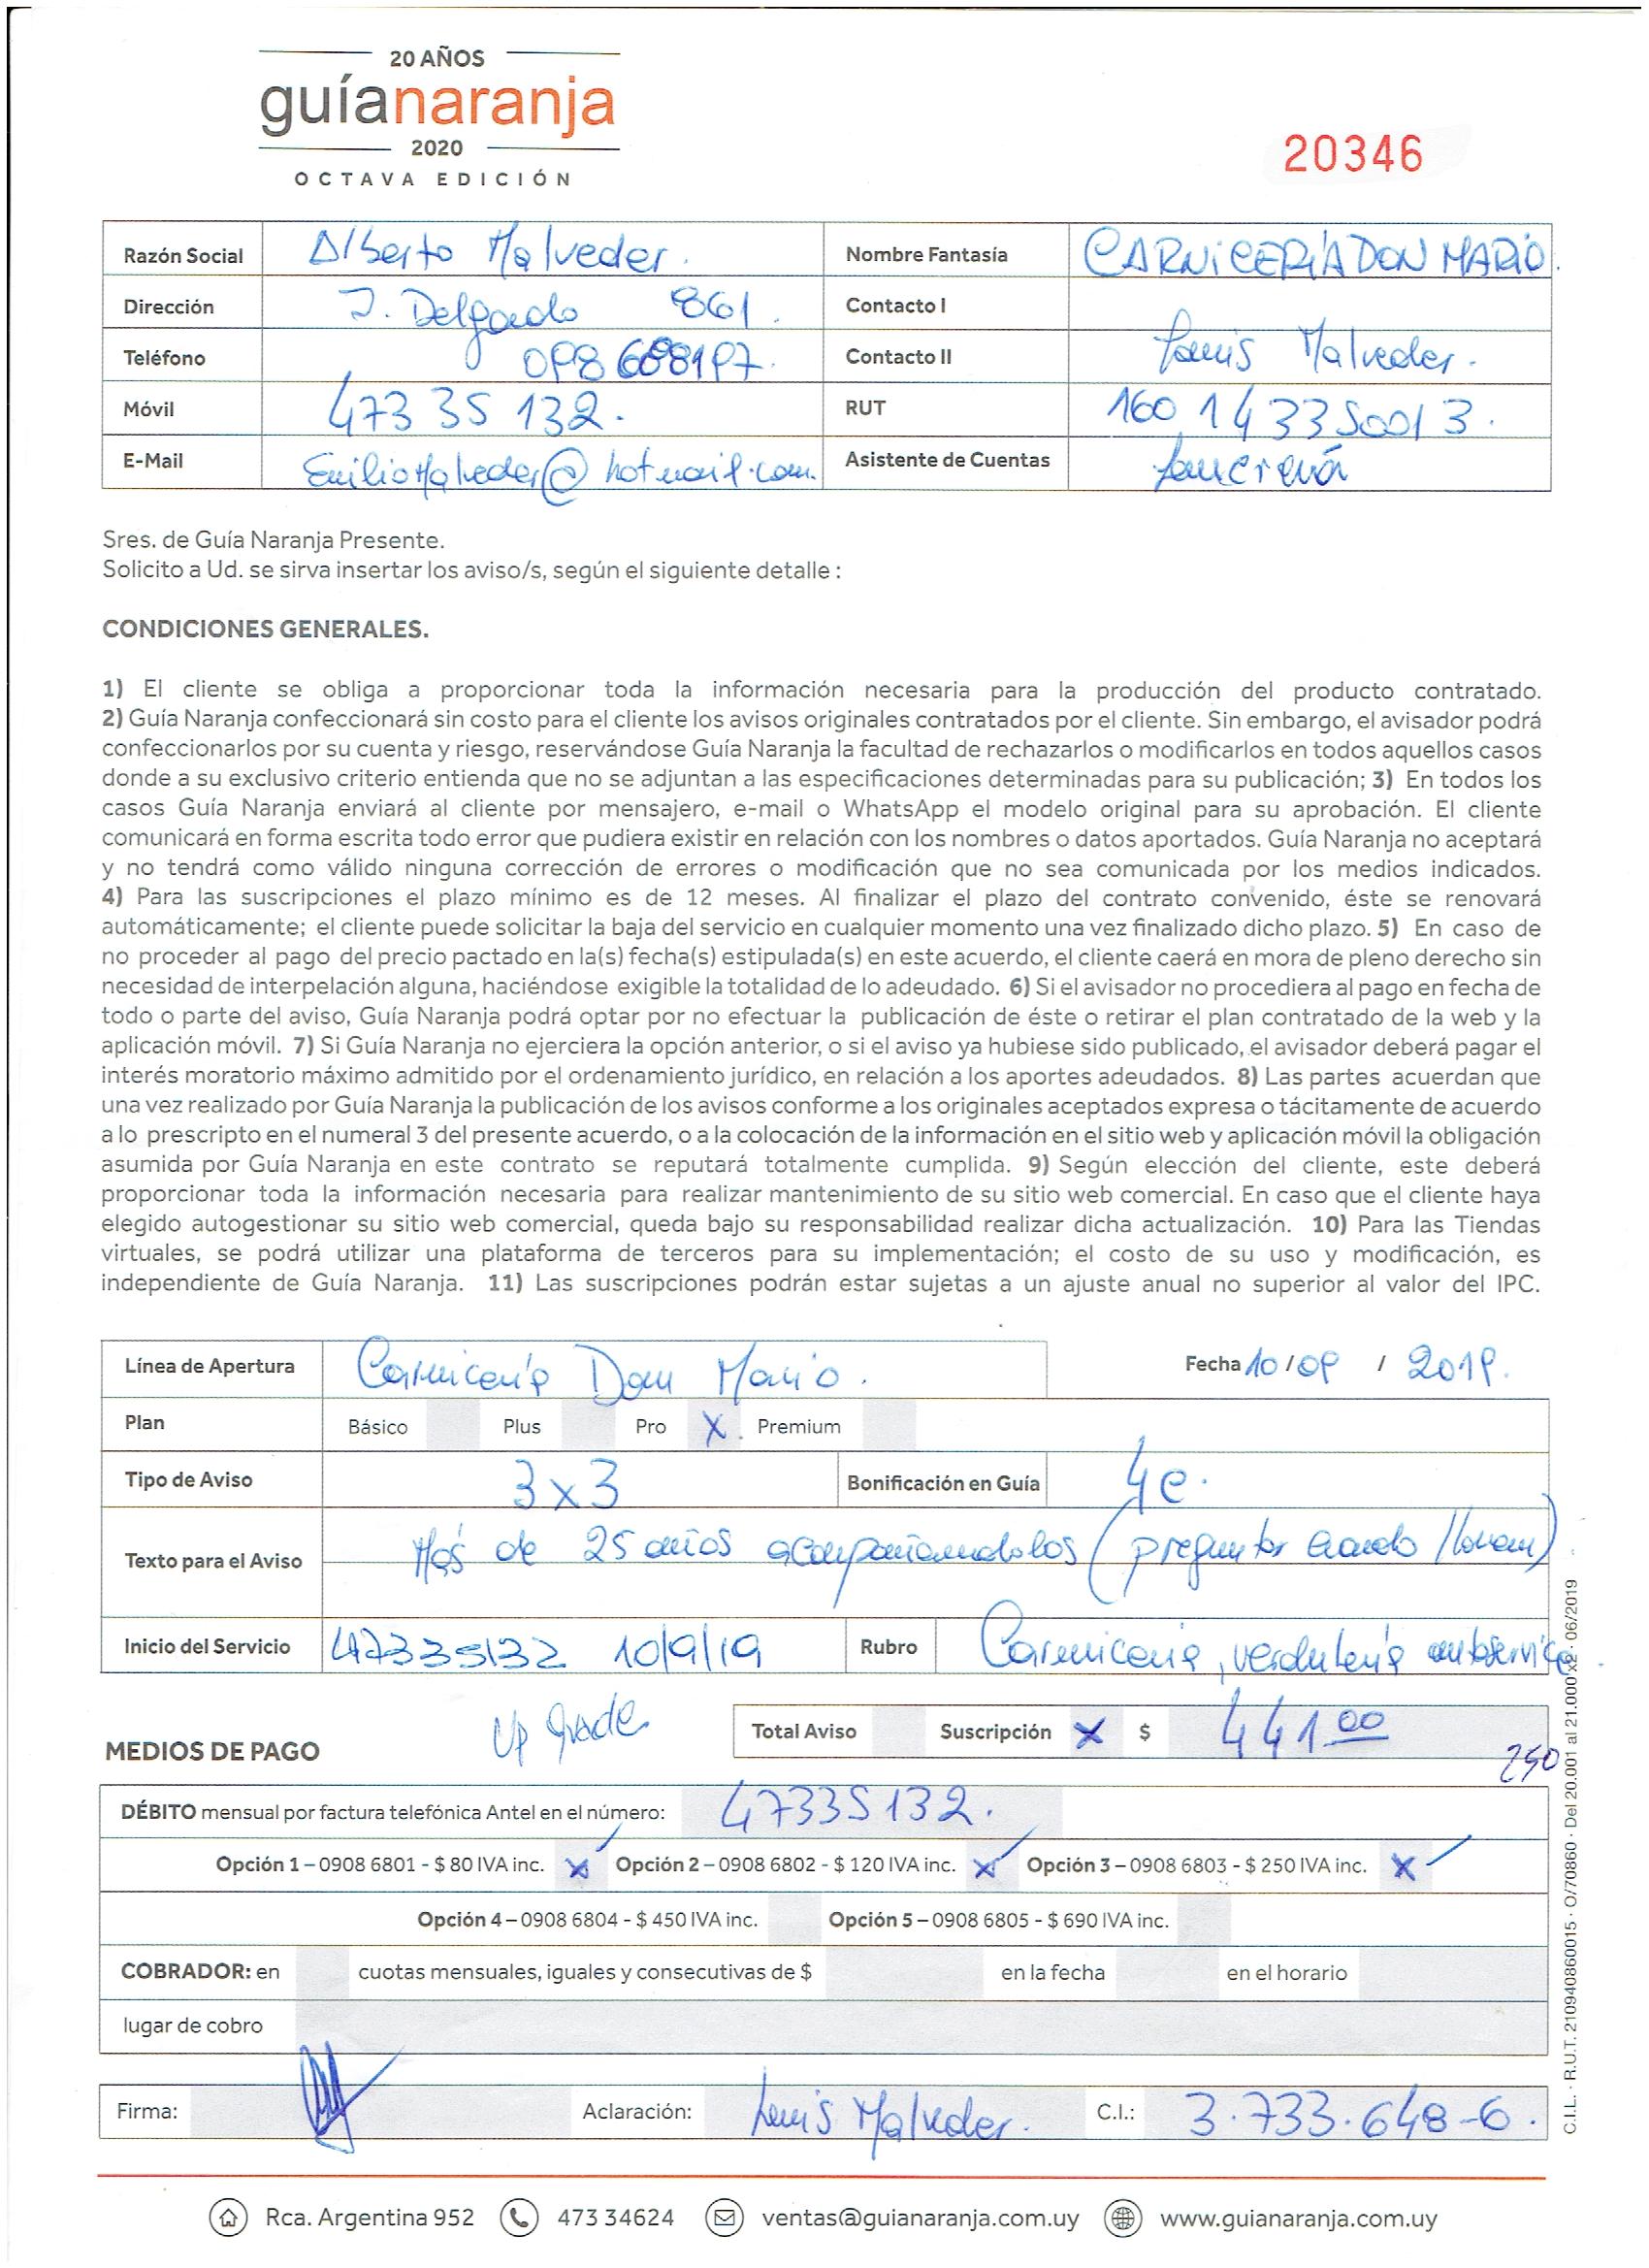 20 AÑOS
guíanaranja
2020
OCTAVA EDICIÓN
20346
Razón Social Alberto Malveder. Nombre Fantasía CARNICERÍA DON MARIO.
Dirección J. Delgado 861. Contacto I
Teléfono 098 688197. Contacto II Luis Malveder.
Móvil 473 35 132. RUT 160 14 33 50013.
E-Mail EmilioMalveder@hotmail.com. Asistente de Cuentas
Sres. de Guía Naranja Presente.
Solicito a Ud. se sirva insertar los aviso/s, según el siguiente detalle :
CONDICIONES GENERALES.
1) El cliente se obliga a proporcionar toda la información necesaria para la producción del producto contratado.
2) Guía Naranja confeccionará sin costo para el cliente los avisos originales contratados por el cliente. Sin embargo, el avisador podrá
confeccionarlos por su cuenta y riesgo, reservándose Guía Naranja la facultad de rechazarlos o modificarlos en todos aquellos casos
donde a su exclusivo criterio entienda que no se adjuntan a las especificaciones determinadas para su publicación; 3) En todos los
casos Guía Naranja enviará al cliente por mensajero, e-mail o WhatsApp el modelo original para su aprobación. El cliente
comunicará en forma escrita todo error que pudiera existir en relación con los nombres o datos aportados. Guía Naranja no aceptará
y no tendrá como válido ninguna corrección de errores o modificación que no sea comunicada por los medios indicados.
4) Para las suscripciones el plazo mínimo es de 12 meses. Al finalizar el plazo del contrato convenido, éste se renovará
automáticamente; el cliente puede solicitar la baja del servicio en cualquier momento una vez finalizado dicho plazo. 5) En caso de
no proceder al pago del precio pactado en la(s) fecha(s) estipulada(s) en este acuerdo, el cliente caerá en mora de pleno derecho sin
necesidad de interpelación alguna, haciéndose exigible la totalidad de lo adeudado. 6) Si el avisador no procediera al pago en fecha de
todo o parte del aviso, Guía Naranja podrá optar por no efectuar la publicación de éste o retirar el plan contratado de la web y la
aplicación móvil. 7) Si Guía Naranja no ejerciera la opción anterior, o si el aviso ya hubiese sido publicado, el avisador deberá pagar el
interés moratorio máximo admitido por el ordenamiento jurídico, en relación a los aportes adeudados. 8) Las partes acuerdan que
una vez realizado por Guía Naranja la publicación de los avisos conforme a los originales aceptados expresa o tácitamente de acuerdo
a lo prescripto en el numeral 3 del presente acuerdo, o a la colocación de la información en el sitio web y aplicación móvil la obligación
asumida por Guía Naranja en este contrato se reputará totalmente cumplida. 9) Según elección del cliente, este deberá
proporcionar toda la información necesaria para realizar mantenimiento de su sitio web comercial. En caso que el cliente haya
elegido autogestionar su sitio web comercial, queda bajo su responsabilidad realizar dicha actualización. 10) Para las Tiendas
virtuales, se podrá utilizar una plataforma de terceros para su implementación; el costo de su uso y modificación, es
independiente de Guía Naranja. 11) Las suscripciones podrán estar sujetas a un ajuste anual no superior al valor del IPC.
Línea de Apertura Carnicería Don Mario. Fecha 10/09 / 2019.
Plan Básico Plus Pro X Premium
Tipo de Aviso 3x3 Bonificación en Guía 4c.
Texto para el Aviso Más de 25 años acompañandolos (preguntar cuando llaman)
Inicio del Servicio 47335132 10/9/19 Rubro Carnicería, verdulería autoservice
Up grade Total Aviso Suscripción X $ 441 00
MEDIOS DE PAGO 250
DÉBITO mensual por factura telefónica Antel en el número: 47335132.
Opción 1 – 0908 6801 - $ 80 IVA inc. X Opción 2 – 0908 6802 - $ 120 IVA inc. X Opción 3 – 0908 6803 - $ 250 IVA inc. X
Opción 4 – 0908 6804 - $ 450 IVA inc. Opción 5 – 0908 6805 - $ 690 IVA inc.
COBRADOR: en cuotas mensuales, iguales y consecutivas de $ en la fecha en el horario
lugar de cobro
Firma: Aclaración: Luis Malveder. C.I.: 3.733.648-6.
C.I.L. · R.U.T. 210940860015 · O/70860 · Del 20.001 al 21.000 x2 · 06/2019
Rca. Argentina 952 473 34624 ventas@guianaranja.com.uy www.guianaranja.com.uy